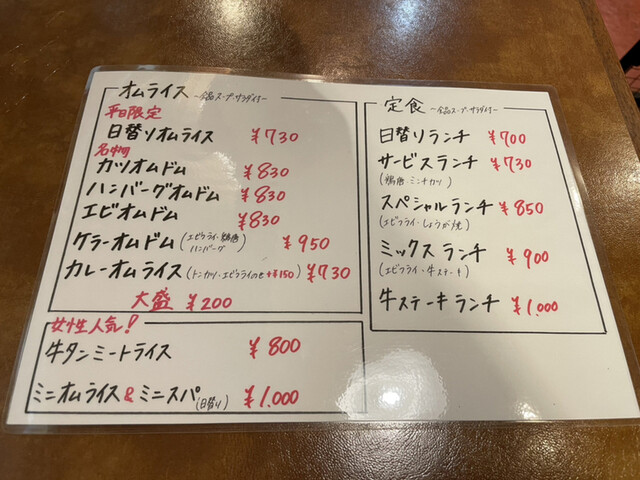 オムライス ~全品スープ・サラダ付~
平日限定
日替りオムライス ¥730
名物
カツオムドム ¥830
ハンバーグオムドム ¥830
エビオムドム ¥830
ケラーオムドム (エビフライ・鶏唐 ハンバーグ) ¥950
カレーオムライス (トンカツ・エビフライのせ +¥150) ¥730
大盛 ¥200
女性人気!
牛タンミートライス ¥800
ミニオムライス & ミニスパ (日替り) ¥1.000
定食 ~全品スープ・サラダ付~
日替りランチ ¥700
サービスランチ ¥730
(鶏唐・ミンチカツ)
スペシャルランチ ¥850
(エビフライ・しょうが焼)
ミックスランチ ¥900
(エビフライ・牛ステーキ)
牛ステーキランチ ¥1.000